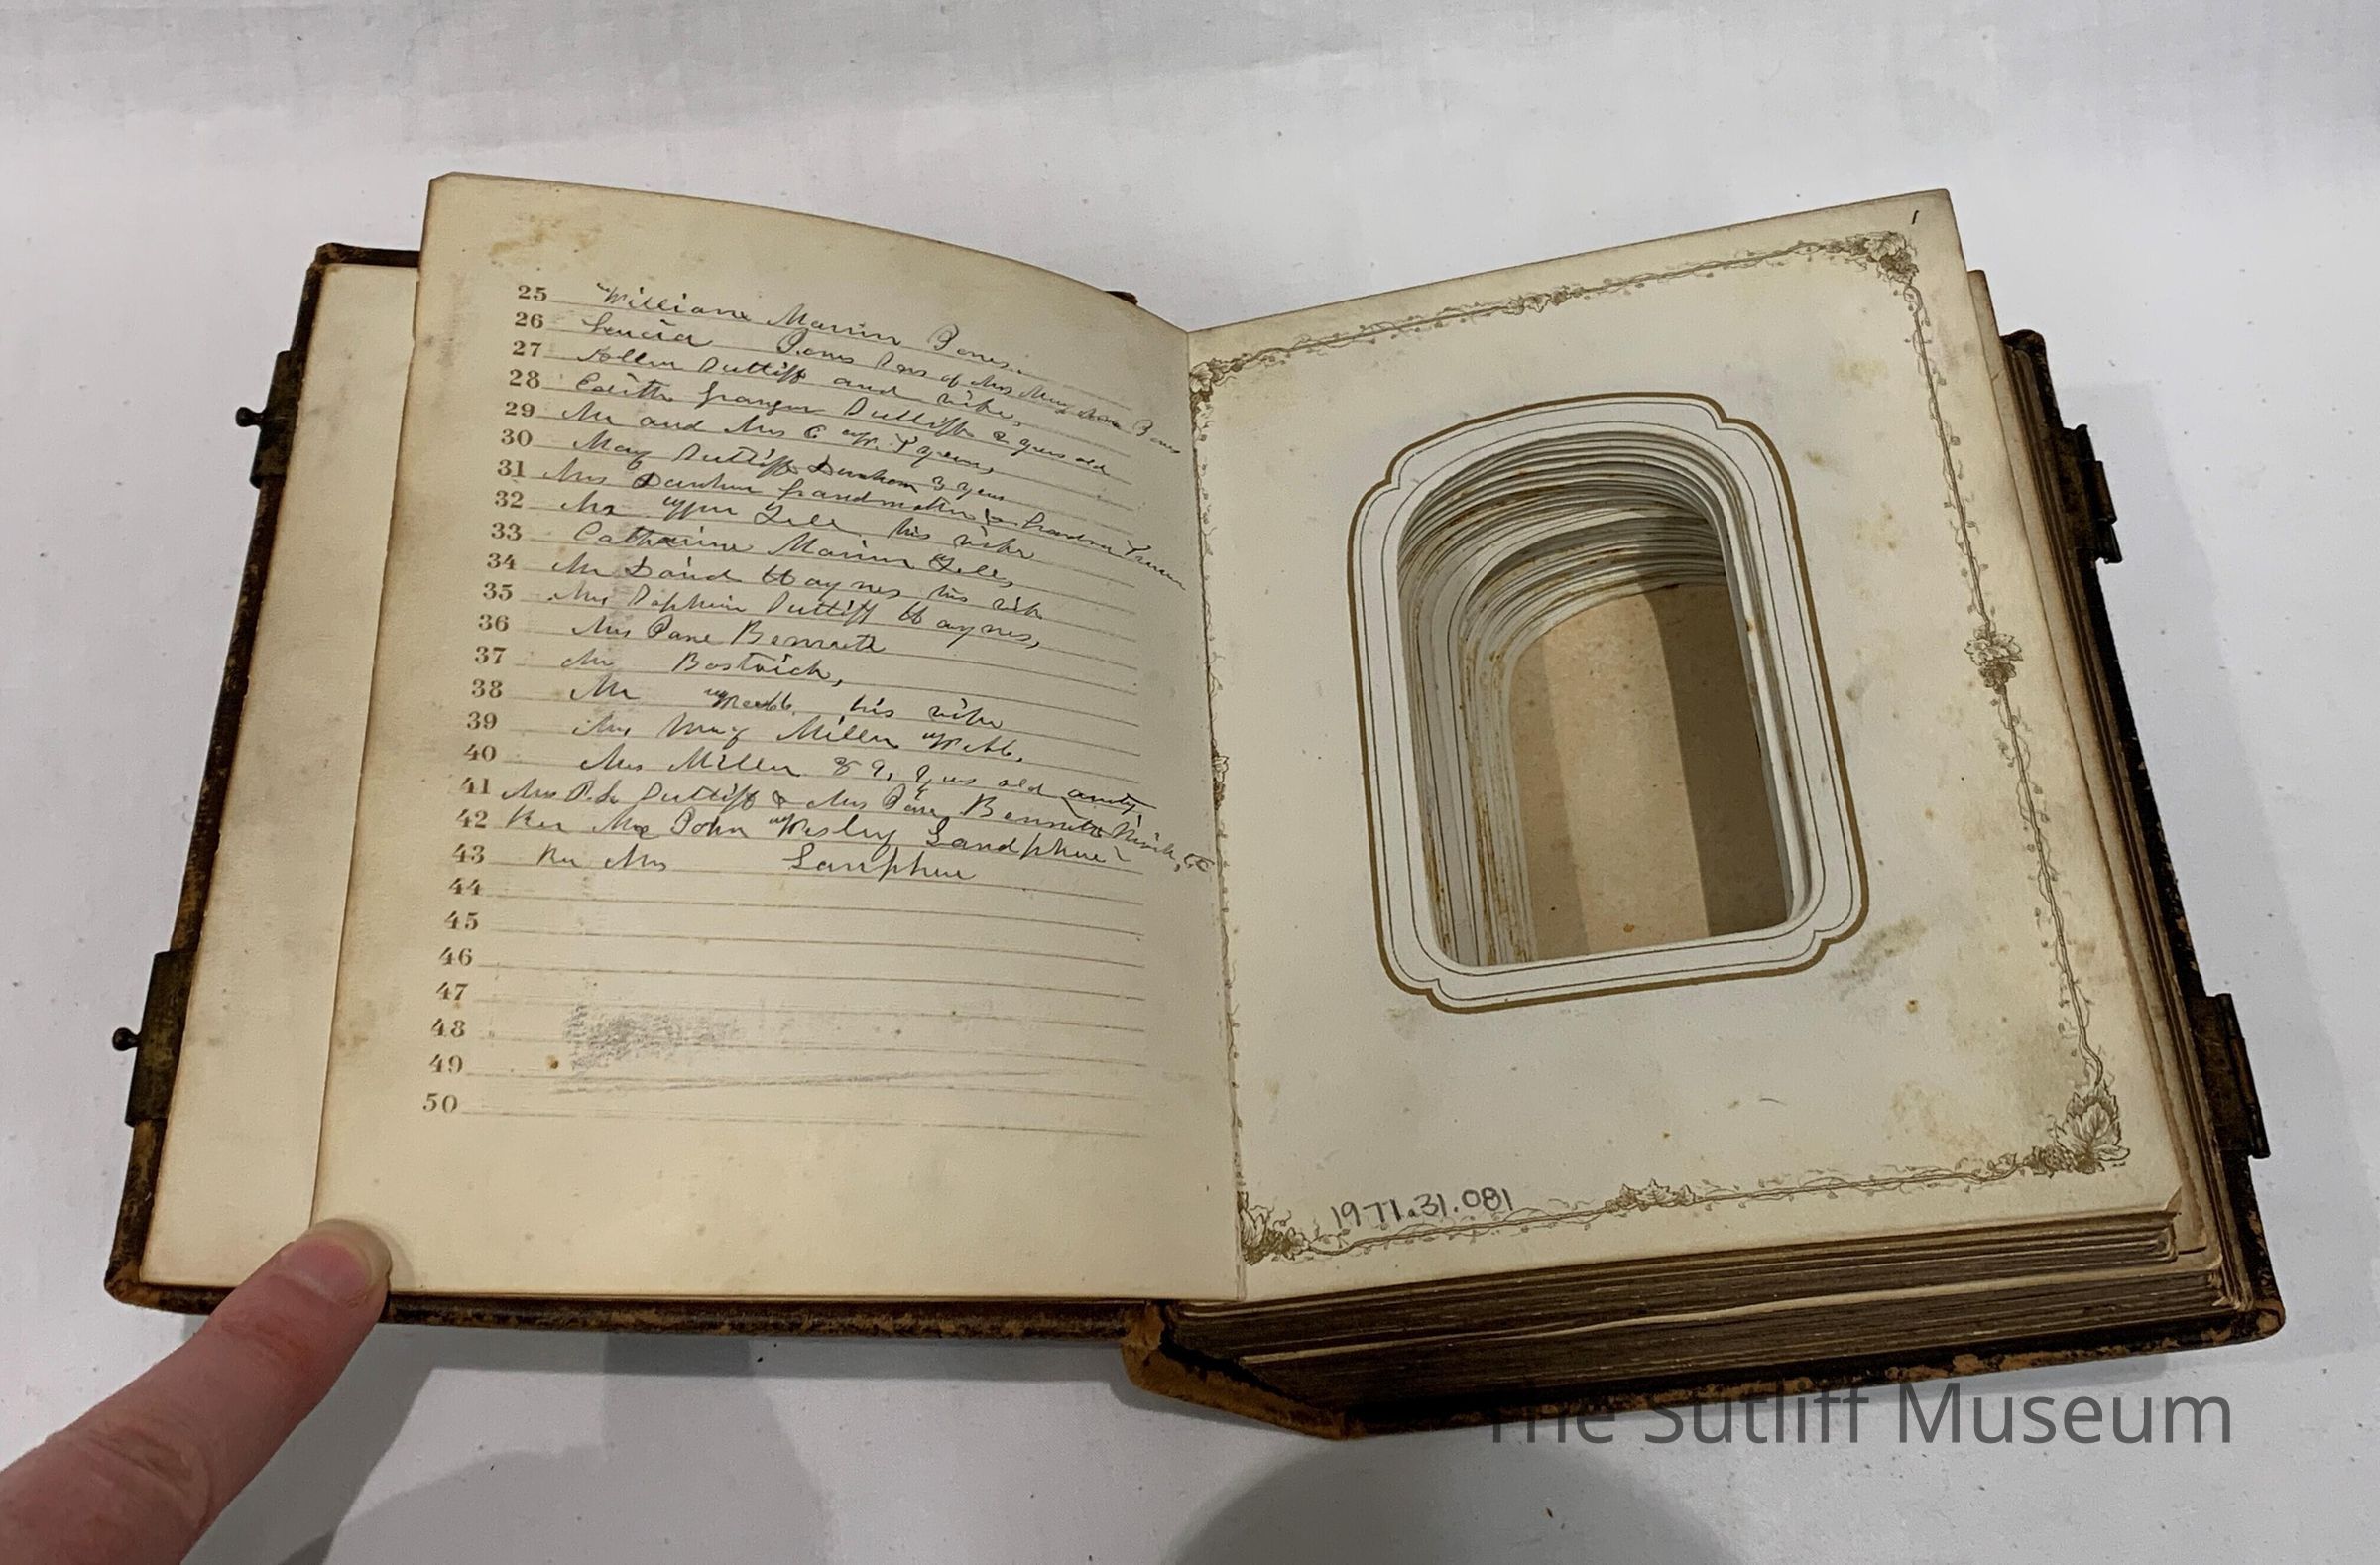 25 William Marvin Jones.
26 Lucia Jones Dau of Mrs Mary Ann Jones
27 Allen Sutliff and wife,
28 Edith Granger Sutliff 2 years old
29 Mr and Mrs C
30 May Sutliff Dunham 3 years
31 Mrs Dunham Grandmother & Grandma
32 Mr Wm Zell his wife
33 Catharine Marvin Zell,
34 Mr David Haynes his wife
35 Mrs Sophia Sutliff Haynes,
36 Mrs Jane Bennett
37 Mr Bostwick,
38 Mr Webb his wife
39 Mrs Mary Miller Webb,
40 Mrs Miller 89, years old
41 Mrs Sutliff & Mrs Jane Bennett
42 Rev Mr John Wesley Landphere
43 Rev Mrs Lanphere
44
45
46
47
48
49
50
1
1971.31.081
The Sutliff Museum